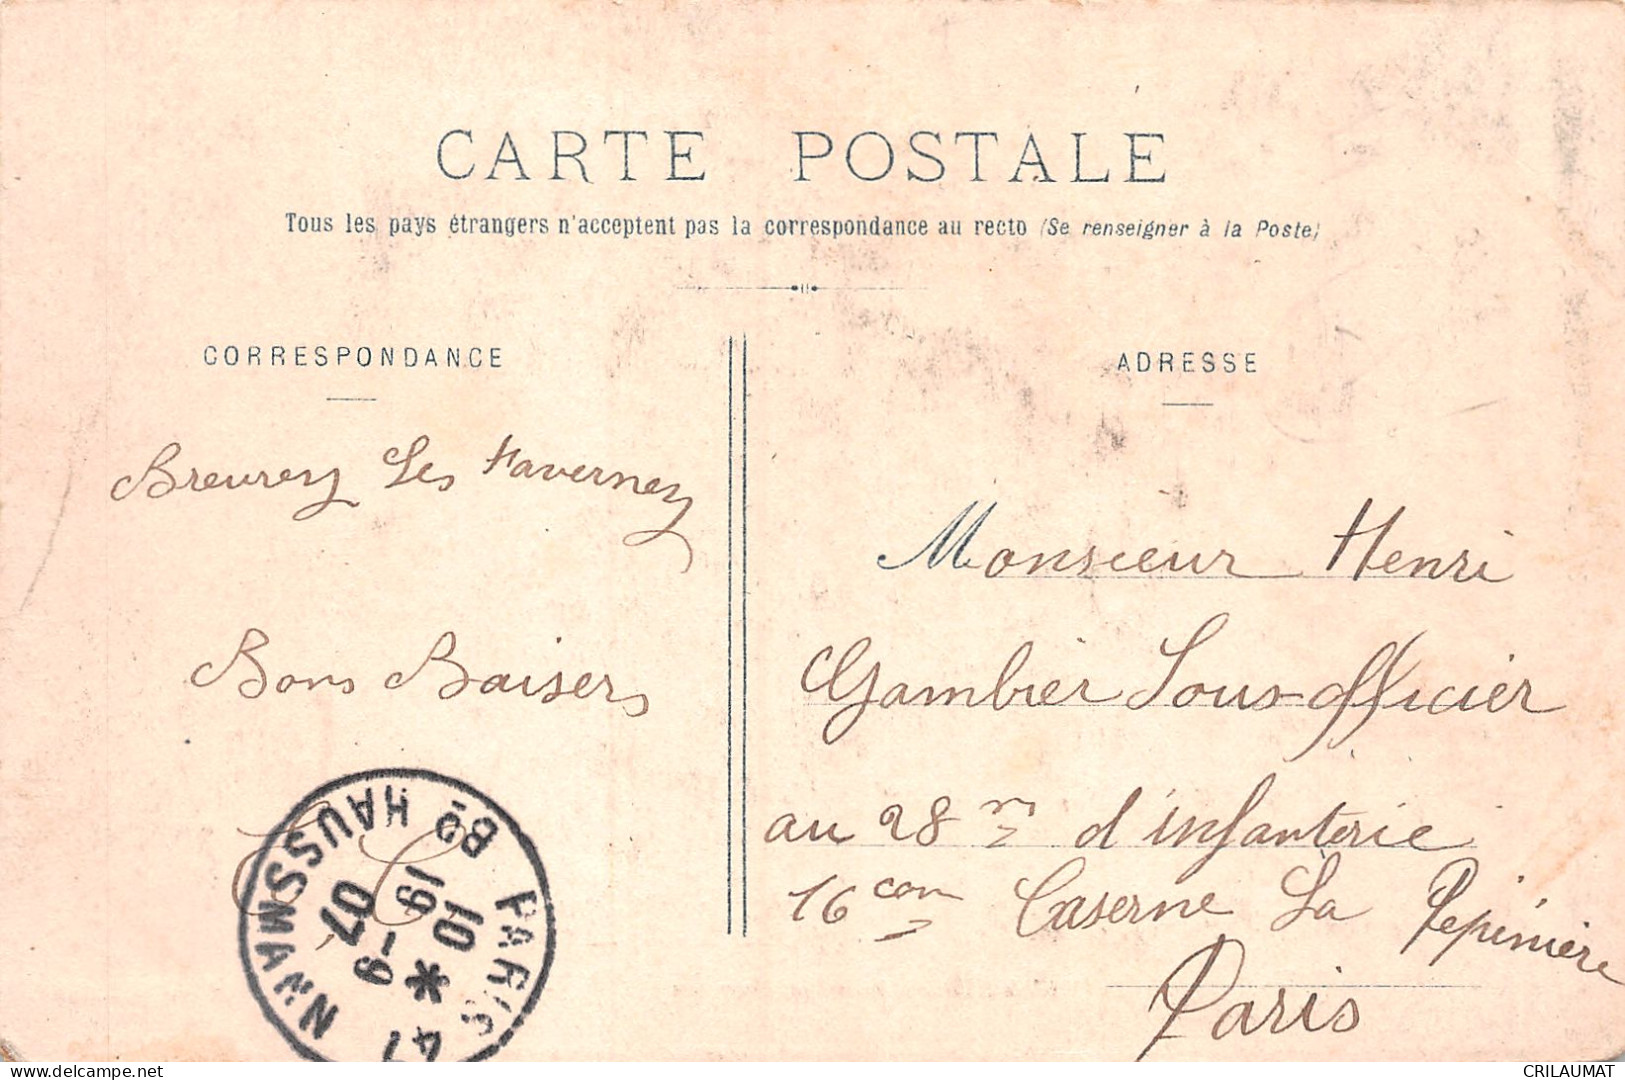 CARTE POSTALE
Tous les pays étrangers n'acceptent pas la correspondance au recto (Se renseigner à la Poste)
CORRESPONDANCE
Breurey Les Faverney
Bons Baisers
ADRESSE
Monsieur Henri
Gambier Sous-officier
au 28 me d'infanterie
16 com Caserne La Pépinière
Paris
PARIS 47
Bd HAUSSMANN
19 10
9 - 07
CRILAUMAT